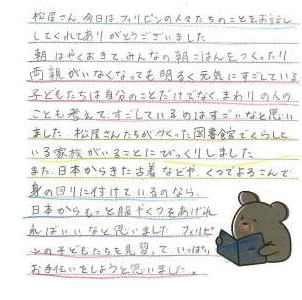 松居さん、今日はフィリピンの人々たちのことをお話し
してくれてありがとうございました。
朝はやくおきて、みんなの朝ごはんをつくったり
両親がいなくなっても明るく元気にすごしている
子どもたちは自分のことだけでなく、まわりの人の
ことも考えて、すごしているのはすごいなと思い
ました。松居さんたちがつくった図書館でくらして
いる家族がいることにびっくりしました。
また、日本からきた古着などや、くつでよろこんで
身の回りに付けているのなら、
日本からもっと服やくつをあげれ
ればいいなと思いました。フィリピ
ンの子どもたちを見習って、いっぱい
お手伝いをしようと思いました。